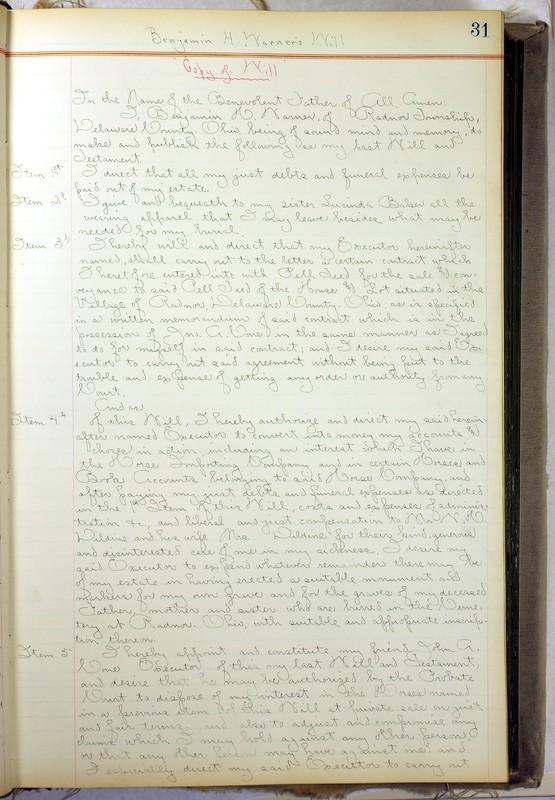 31
Benjamin H. Warner's Will
"Copy of Will"
In the Name of the Benevolent Father of All. Amen:
I, Benjamin H. Warner, of Radnor Township,
Delaware County Ohio, being of sound mind and memory, do
make and publish the following as my last Will and
Testament.
Item 1st I direct that all my just debts and funeral expenses be
paid out of my estate.
Item 2d I give and bequeath to my sister Lucinda Baker all the
wearing apparel that I may leave besides what may be
needed for my burial.
Item 3d I hereby will and direct that my Executor hereinafter
named, shall carry out to the letter a certain contract which
I heretofore entered into with for the sale & con-
veyance to said of the House & Lot situated in the
Village of Radnor, Delaware County, Ohio, as is specified
in a written memorandum of said contract which is in the
possession of Jno. A. in the same manner as I agreed
to do for myself in said contract; and I desire my said Ex-
ecutor to carry out said agreement without being put to the
trouble and expense of getting any order or authority from any
Court.
Item 4th of this Will, I hereby authorize and direct my said herein-
after named Executor to convert into money my accounts &
chose in action including an interest which I have in
the Horse Importing Company and in certain Horses and
Book Accounts belonging to said Horse Company, and
after paying my just debts and funeral expenses as directed
in the 1st Item of this Will, costs and expenses of adminis-
tration &c, and liberal and just compensation to W. H.
and his wife Mrs. for their kind, generous
and disinterested care of me in my sickness, I desire my
said Executor to expend whatever remainder there may be
of my estate in having erected a suitable monument and
markers for my own grave and for the graves of my deceased
Father, mother and sister who are buried in the Ceme-
tery at Radnor, Ohio, with suitable and appropriate inscrip-
tion thereon.
Item 5 I hereby appoint and constitute my friend, John A.
Executor of this my last Will and Testament,
and desire that he may be authorized by the Probate
Court to dispose of my interest in the Horses named
in a previous item of this Will at private sale on just
and fair terms, and also to adjust and compromise any
claims which I may hold against any other person,
or that any other person may have against me: and
I especially direct my said Executor to carry out